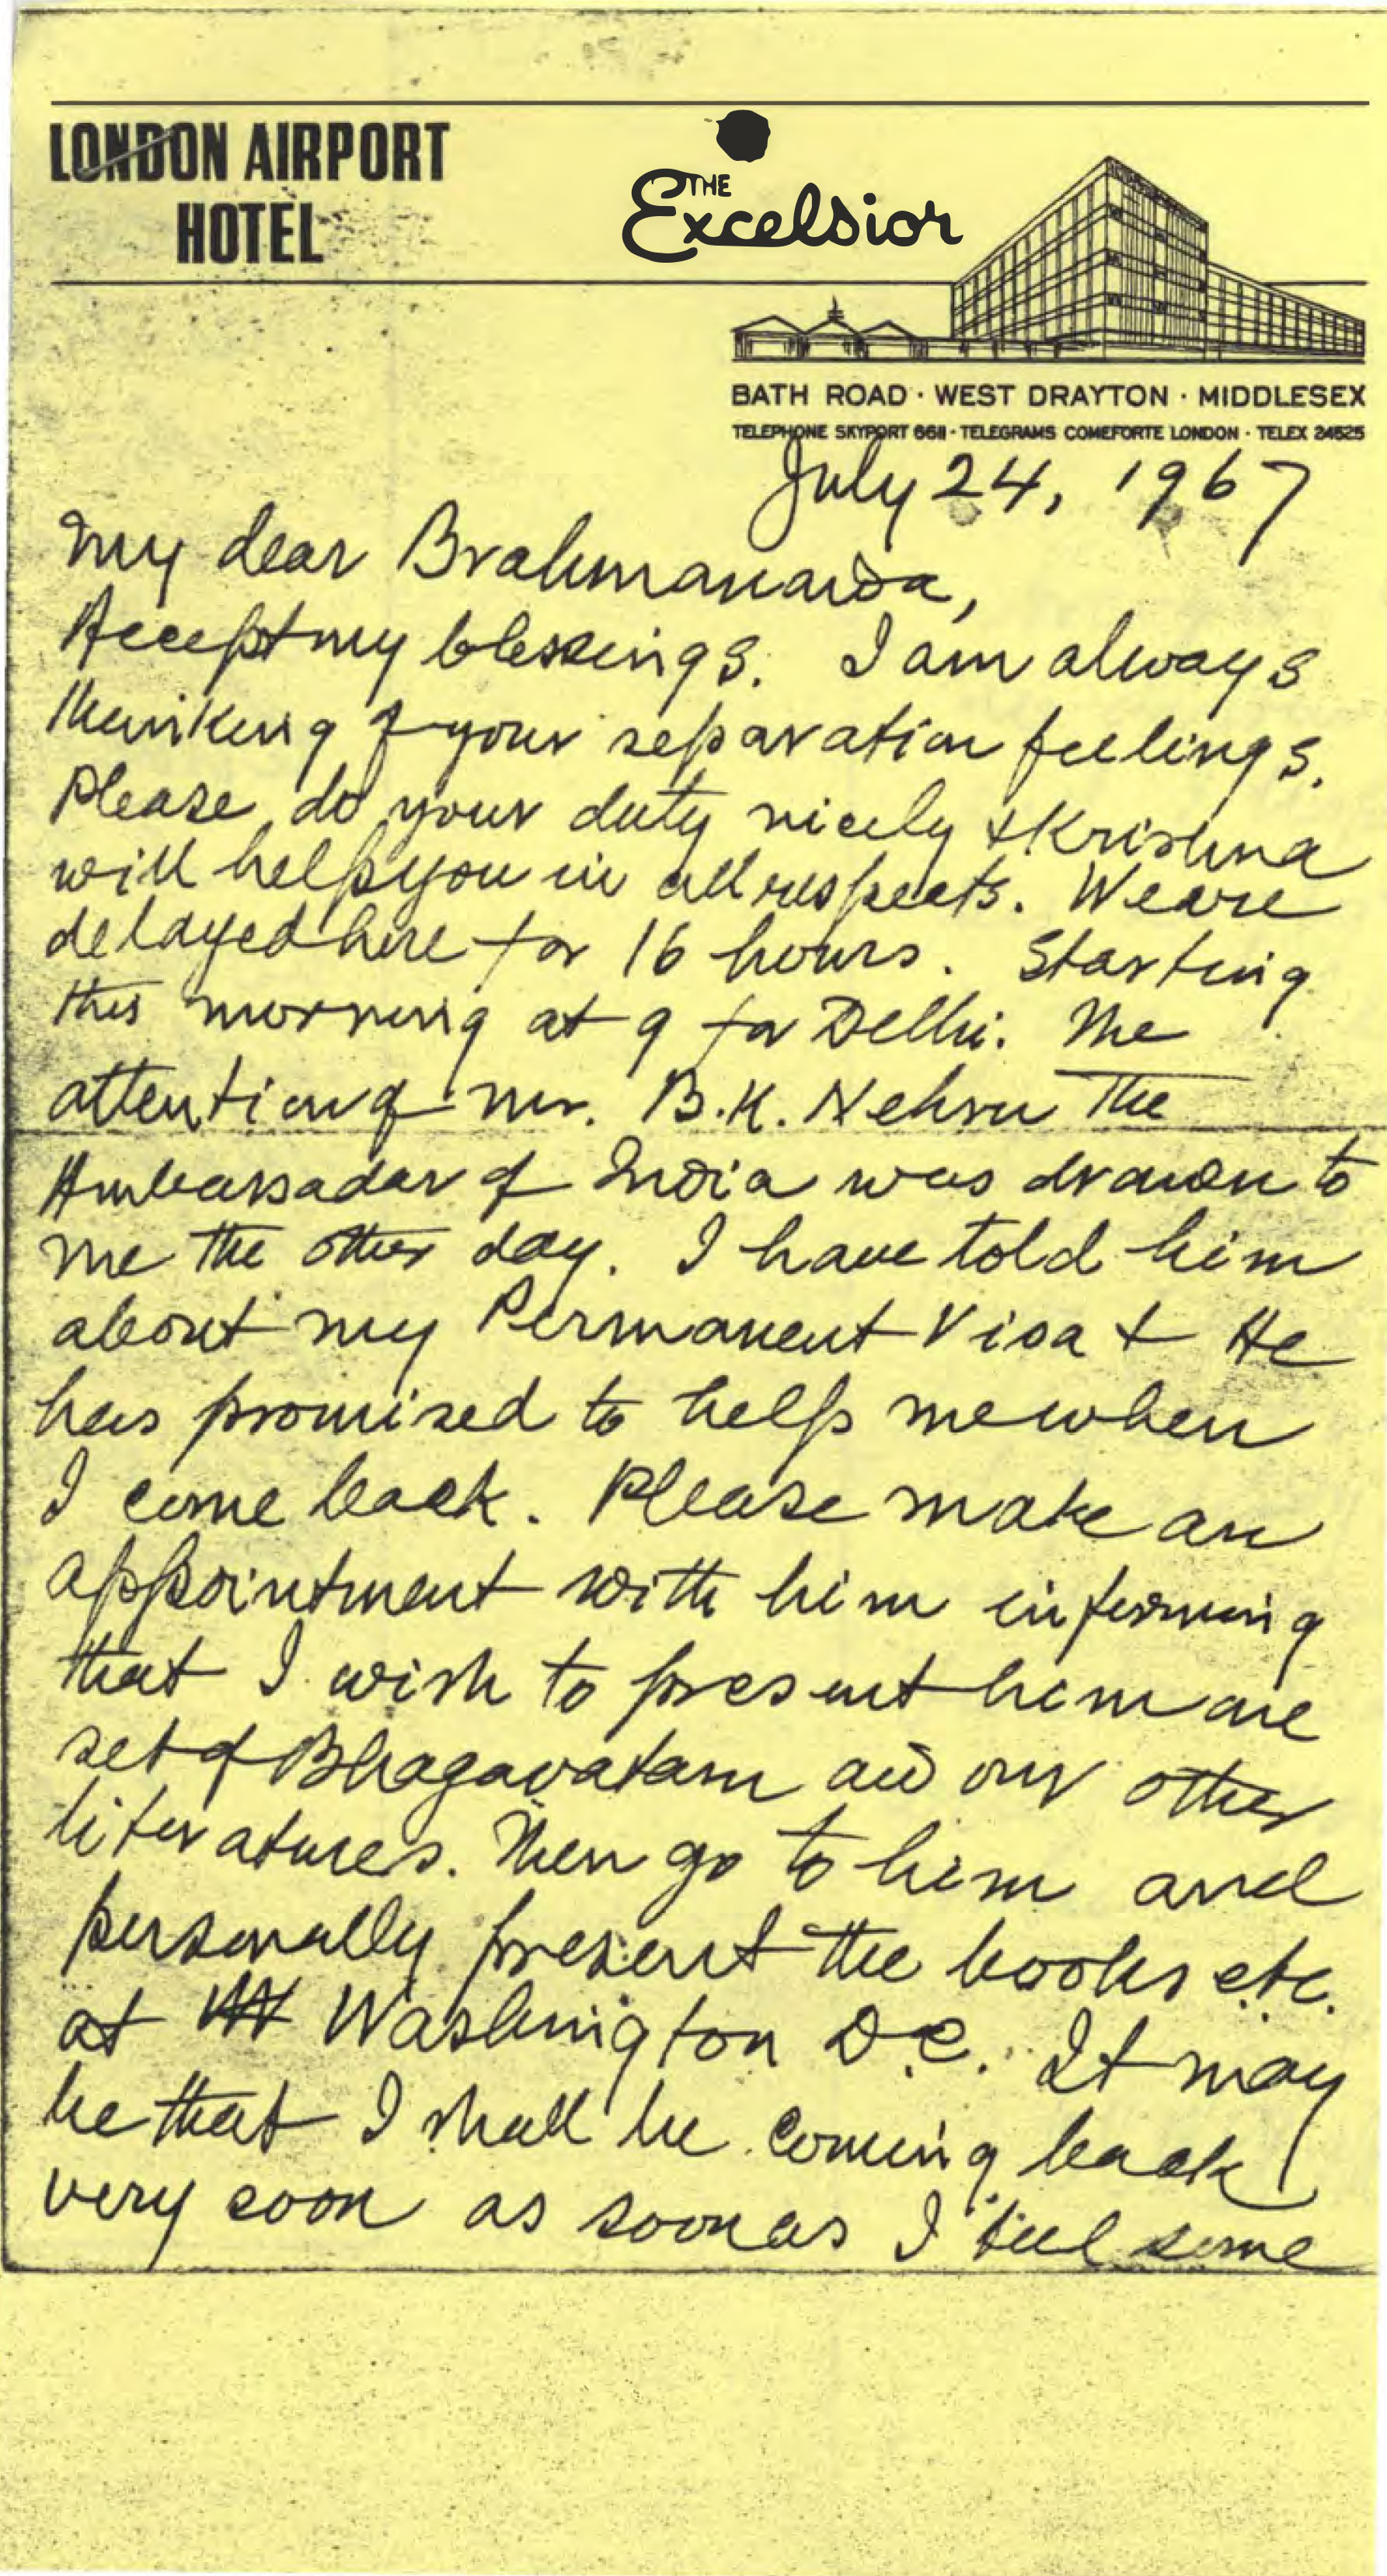 LONDON AIRPORT
HOTEL
THE
Excelsior
BATH ROAD · WEST DRAYTON · MIDDLESEX
TELEPHONE SKYPORT 6611 · TELEGRAMS COMEFORTE LONDON · TELEX 24525
July 24, 1967
My dear Brahmananda,
Accept my blessings. I am always
thinking of your separation feelings.
Please do your duty nicely & Krishna
will help you in all respects. We are
delayed here for 16 hours. Starting
this morning at 9 for Delhi. The
attention of Mr. B.K. Nehru The
Ambassador of India was drawn to
me the other day. I have told him
about my Permanent Visa & He
has promised to help me when
I come back. Please make an
appointment with him informing
that I wish to present him one
set of Bhagavatam and our other
literatures. Then go to him and
personally present the books etc.
at Washington D.C. It may
be that I shall be coming back
very soon as soon as I feel some